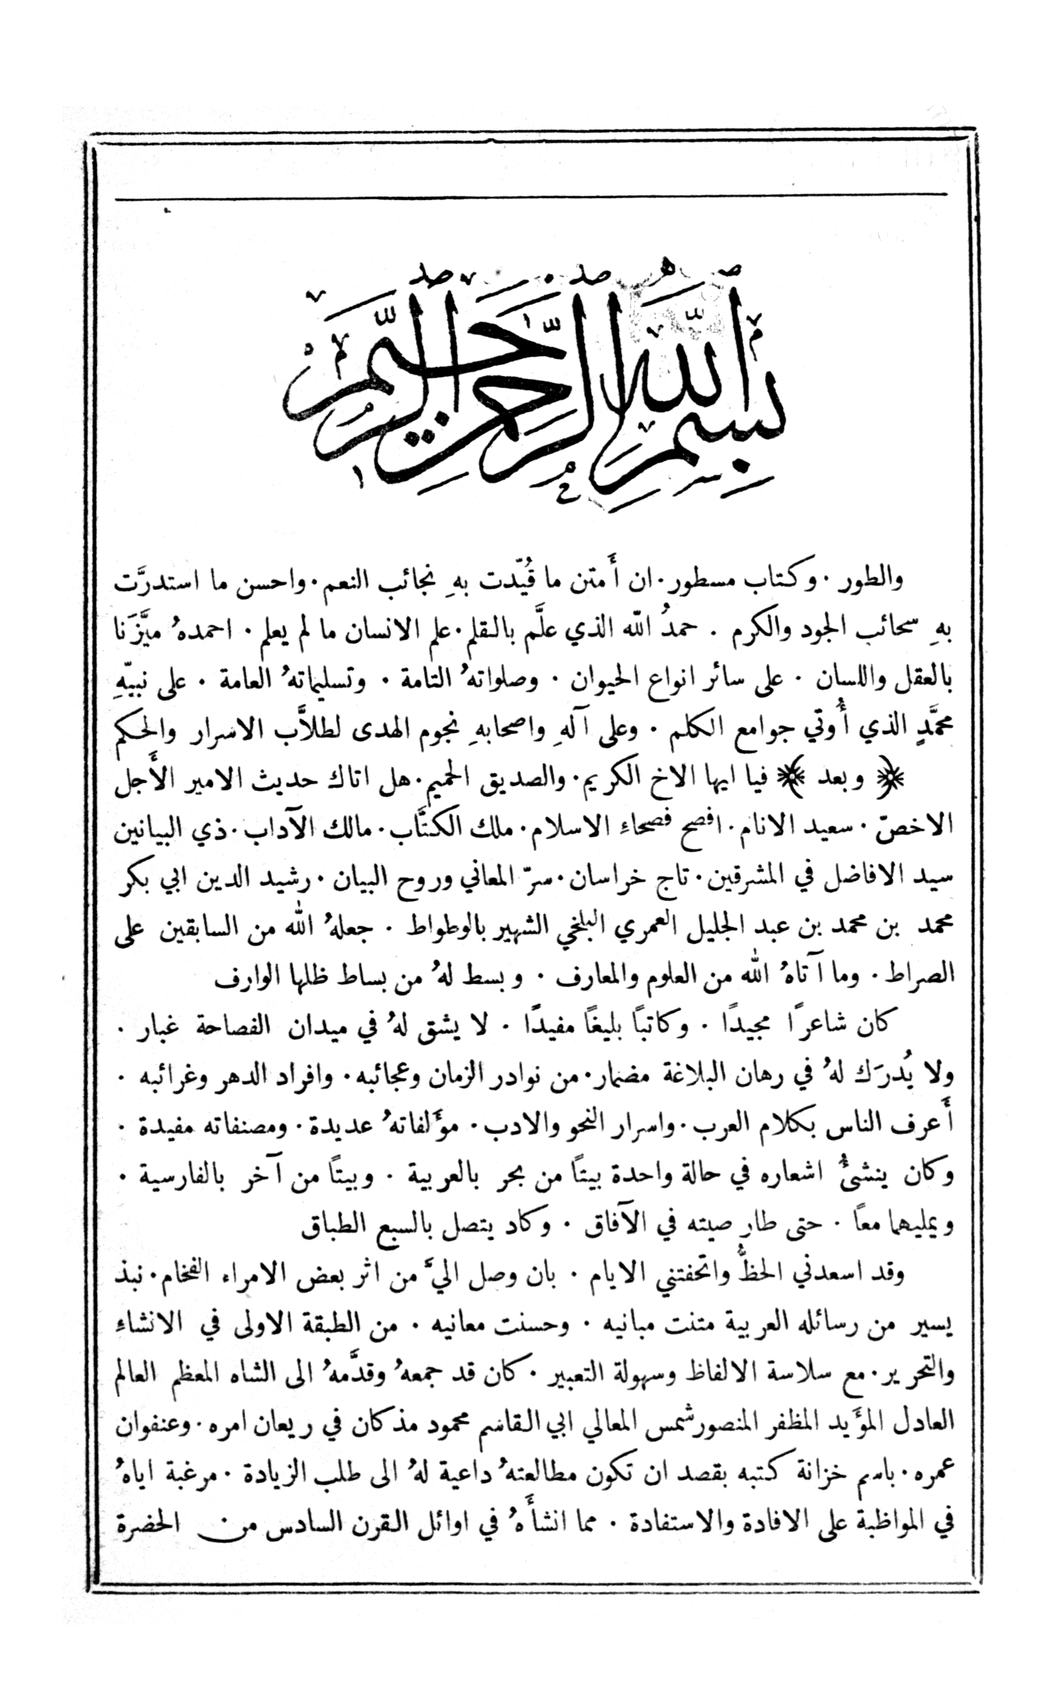 بسم الله الرحمن الرحيم
والطور ٠ وكتاب مسطور ٠ ان أَمتن ما قُيّدت بهِ نجائب النعم ٠ واحسن ما استدرَّت
بهِ سحائب الجود والكرم ٠ حمدُ الله الذي علَّم بالقلم ٠ علم الانسان ما لم يعلم ٠ احمدهُ ميَّزَنا
بالعقل واللسان ٠ على سائر انواع الحيوان ٠ وصلواتهُ التامة ٠ وتسليماتهُ العامة ٠ على نبيّهِ
محمَّدٍ الذي أُوتي جوامع الكلم ٠ وعلى آلهِ واصحابهِ نجوم الهدى لطلاَّب الاسرار والحكم
﴿ وبعد ﴾ فيا ايها الاخ الكريم ٠ والصديق الحميم ٠ هل اتاك حديث الامير الأَجل
الاخصّ ٠ سعيد الانام ٠ افصح فصحاءِ الاسلام ٠ ملك الكتَّاب ٠ مالك الآداب ٠ ذي البيانين
سيد الافاضل في المشرقين ٠ تاج خراسان ٠ سرّ المعاني وروح البيان ٠ رشيد الدين ابي بكر
محمد بن محمد بن عبد الجليل العمري البلخي الشهير بالوطواط ٠ جعلهُ الله من السابقين على
الصراط ٠ وما آتاهُ الله من العلوم والمعارف ٠ وبسط لهُ من بساط ظلها الوارف
كان شاعرًا مجيدًا ٠ وكاتبًا بليغًا مفيدًا ٠ لا يشق لهُ في ميدان الفصاحة غبار ٠
ولا يُدرَك لهُ في رهان البلاغة مضمار ٠ من نوادر الزمان وعجائبه ٠ وافراد الدهر وغرائبه ٠
أَعرف الناس بكلام العرب ٠ واسرار النحو والادب ٠ مؤَلفاتهُ عديدة ٠ ومصنفاته مفيدة ٠
وكان ينشئُ اشعاره في حالة واحدة بيتًا من بحر بالعربية ٠ وبيتًا من آخر بالفارسية ٠
ويمليهما معًا ٠ حتى طار صيته في الآفاق ٠ وكاد يتصل بالسبع الطباق
وقد اسعدني الحظُّ واتحفتني الايام ٠ بان وصل اليَّ من اثر بعض الامراء الفخام ٠ نبذ
يسير من رسائله العربية متنت مبانيه ٠ وحسنت معانيه ٠ من الطبقة الاولى في الانشاءِ
والتحرير ٠ مع سلاسة الالفاظ وسهولة التعبير ٠ كان قد جمعهُ وقدَّمهُ الى الشاه المعظم العالم
العادل المؤَيد المظفر المنصور شمس المعالي ابي القاسم محمود مذ كان في ريعان امره ٠ وعنفوان
عمره ٠ باسم خزانة كتبه بقصد ان تكون مطالعتهُ داعية لهُ الى طلب الزيادة ٠ مرغبة اياهُ
في المواظبة على الافادة والاستفادة ٠ مما انشأَهُ في اوائل القرن السادس من الحضرة